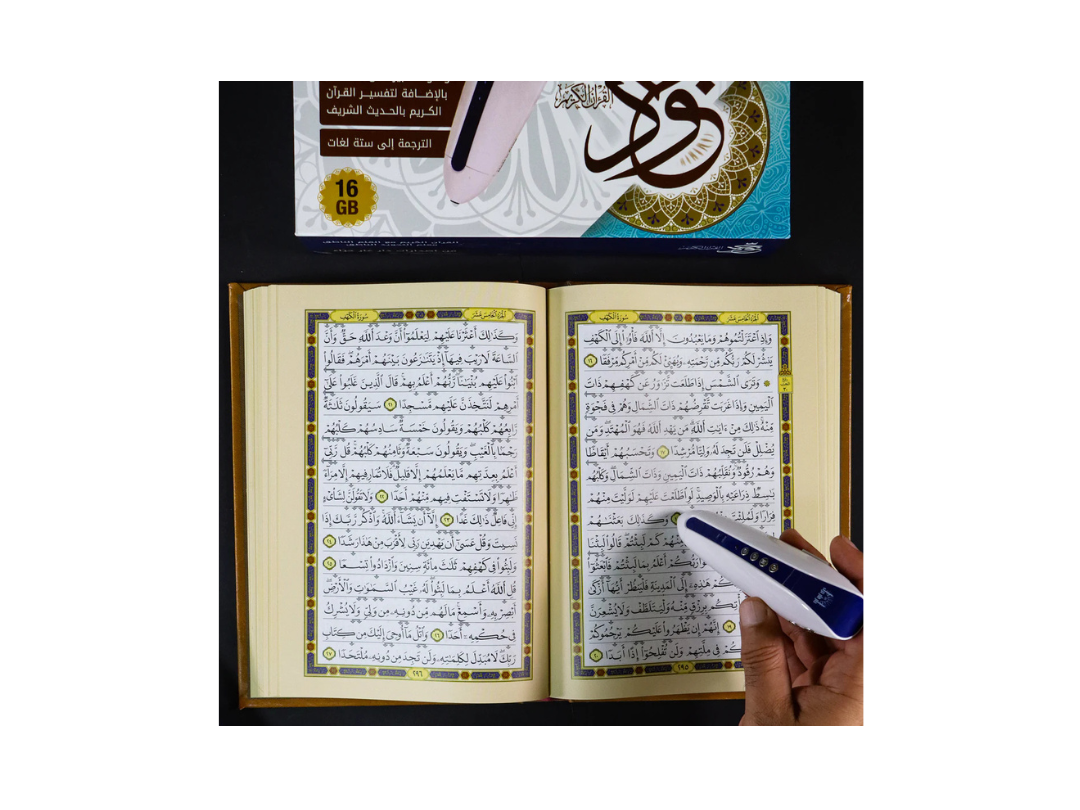 بالإضافة لتفسير القرآن
الكريم بالحديث الشريف
الترجمة إلى ستة لغات
16
GB
القرآن الكريم
نور
القرآن الكريم مع القلم الناطق
سُورَةُ الكَهْفِ
الجُزْءُ الخَامِسَ عَشَرَ
وَإِذِ ٱعْتَزَلْتُمُوهُمْ وَمَا يَعْبُدُونَ إِلَّا ٱللَّهَ فَأْوُۥٓا۟ إِلَى ٱلْكَهْفِ
يَنشُرْ لَكُمْ رَبُّكُم مِّن رَّحْمَتِهِۦ وَيُهَيِّئْ لَكُم مِّنْ أَمْرِكُم مِّرْفَقًا ١٦
۞ وَتَرَى ٱلشَّمْسَ إِذَا طَلَعَت تَّزَٰوَرُ عَن كَهْفِهِمْ ذَاتَ
ٱلْيَمِينِ وَإِذَا غَرَبَت تَّقْرِضُهُمْ ذَاتَ ٱلشِّمَالِ وَهُمْ فِى فَجْوَةٍ
مِّنْهُ ذَٰلِكَ مِنْ ءَايَٰتِ ٱللَّهِ مَن يَهْدِ ٱللَّهُ فَهُوَ ٱلْمُهْتَدِ وَمَن
يُضْلِلْ فَلَن تَجِدَ لَهُۥ وَلِيًّا مُّرْشِدًا ١٧ وَتَحْسَبُهُمْ أَيْقَاظًا
وَهُمْ رُقُودٌ وَنُقَلِّبُهُمْ ذَاتَ ٱلْيَمِينِ وَذَاتَ ٱلشِّمَالِ وَكَلْبُهُم
بَٰسِطٌ ذِرَاعَيْهِ بِٱلْوَصِيدِ لَوِ ٱطَّلَعْتَ عَلَيْهِمْ لَوَلَّيْتَ مِنْهُمْ
فِرَارًا وَلَمُلِئْتَ وَكَذَٰلِكَ بَعَثْنَٰهُمْ
مِّنْهُمْ كَمْ لَبِثْتُمْ قَالُوا۟ لَبِثْنَا
رَبُّكُمْ أَعْلَمُ بِمَا لَبِثْتُمْ فَٱبْعَثُوٓا۟
هَٰذِهِۦٓ إِلَى ٱلْمَدِينَةِ فَلْيَنظُرْ أَيُّهَآ أَزْكَىٰ
بِرِزْقٍ مِّنْهُ وَلْيَتَلَطَّفْ وَلَا يُشْعِرَنَّ
١٩ إِنَّهُمْ إِن يَظْهَرُوا۟ عَلَيْكُمْ يَرْجُمُوكُمْ
فِى مِلَّتِهِمْ وَلَن تُفْلِحُوٓا۟ إِذًا أَبَدًا ٢٠
٢٩٥
سُورَةُ الكَهْفِ
الجُزْءُ الخَامِسَ عَشَرَ
وَكَذَٰلِكَ أَعْثَرْنَا عَلَيْهِمْ لِيَعْلَمُوٓا۟ أَنَّ وَعْدَ ٱللَّهِ حَقٌّ وَأَنَّ
ٱلسَّاعَةَ لَا رَيْبَ فِيهَآ إِذْ يَتَنَٰزَعُونَ بَيْنَهُمْ أَمْرَهُمْ فَقَالُوا۟
ٱبْنُوا۟ عَلَيْهِم بُنْيَٰنًا رَّبُّهُمْ أَعْلَمُ بِهِمْ قَالَ ٱلَّذِينَ غَلَبُوا۟ عَلَىٰٓ
أَمْرِهِمْ لَنَتَّخِذَنَّ عَلَيْهِم مَّسْجِدًا ٢١ سَيَقُولُونَ ثَلَٰثَةٌ
رَّابِعُهُمْ كَلْبُهُمْ وَيَقُولُونَ خَمْسَةٌ سَادِسُهُمْ كَلْبُهُمْ
رَجْمًۢا بِٱلْغَيْبِ وَيَقُولُونَ سَبْعَةٌ وَثَامِنُهُمْ كَلْبُهُمْ قُل رَّبِّىٓ
أَعْلَمُ بِعِدَّتِهِم مَّا يَعْلَمُهُمْ إِلَّا قَلِيلٌ فَلَا تُمَارِ فِيهِمْ إِلَّا مِرَآءً
ظَٰهِرًا وَلَا تَسْتَفْتِ فِيهِم مِّنْهُمْ أَحَدًا ٢٢ وَلَا تَقُولَنَّ لِشَا۟ىْءٍ
إِنِّى فَاعِلٌ ذَٰلِكَ غَدًا ٢٣ إِلَّآ أَن يَشَآءَ ٱللَّهُ وَٱذْكُر رَّبَّكَ إِذَا
نَسِيتَ وَقُلْ عَسَىٰٓ أَن يَهْدِيَنِ رَبِّى لِأَقْرَبَ مِنْ هَٰذَا رَشَدًا ٢٤
وَلَبِثُوا۟ فِى كَهْفِهِمْ ثَلَٰثَ مِا۟ئَةٍ سِنِينَ وَٱزْدَادُوا۟ تِسْعًا ٢٥
قُلِ ٱللَّهُ أَعْلَمُ بِمَا لَبِثُوا۟ لَهُۥ غَيْبُ ٱلسَّمَٰوَٰتِ وَٱلْأَرْضِ
أَبْصِرْ بِهِۦ وَأَسْمِعْ مَا لَهُم مِّن دُونِهِۦ مِن وَلِىٍّ وَلَا يُشْرِكُ
فِى حُكْمِهِۦٓ أَحَدًا ٢٦ وَٱتْلُ مَآ أُوحِىَ إِلَيْكَ مِن كِتَابِ
رَبِّكَ لَا مُبَدِّلَ لِكَلِمَٰتِهِۦ وَلَن تَجِدَ مِن دُونِهِۦ مُلْتَحَدًا ٢٧
٢٩٦